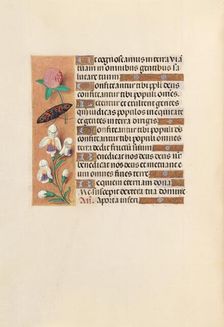 Ut cognoscamus in terra via
tuam in omnibus gentibus sa
lutare tuum
Confiteantur tibi ppli deus
confiteantur tibi populi omnes
Letentur et exultent gentes
quoniam iudicas populos in equitate
et gentes in terra dirigis
Confiteantur tibi populi deus
confiteantur tibi populi omnes
terra dedit fructum suum
Benedicat nos deus deus nr
benedicat nos deus et metuant
eum omnes fines terre
Requiem eternam dona
Me suscepit dextera tua domine
An. A porta inferi